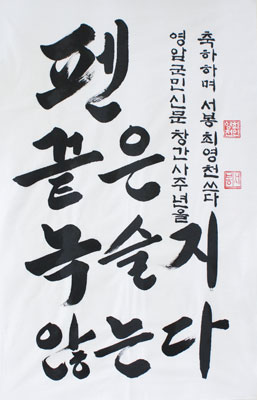 펜
끝은
녹슬지
않는다
영암군민신문 창간사주년을
축하하며 서봉 최영천 쓰다